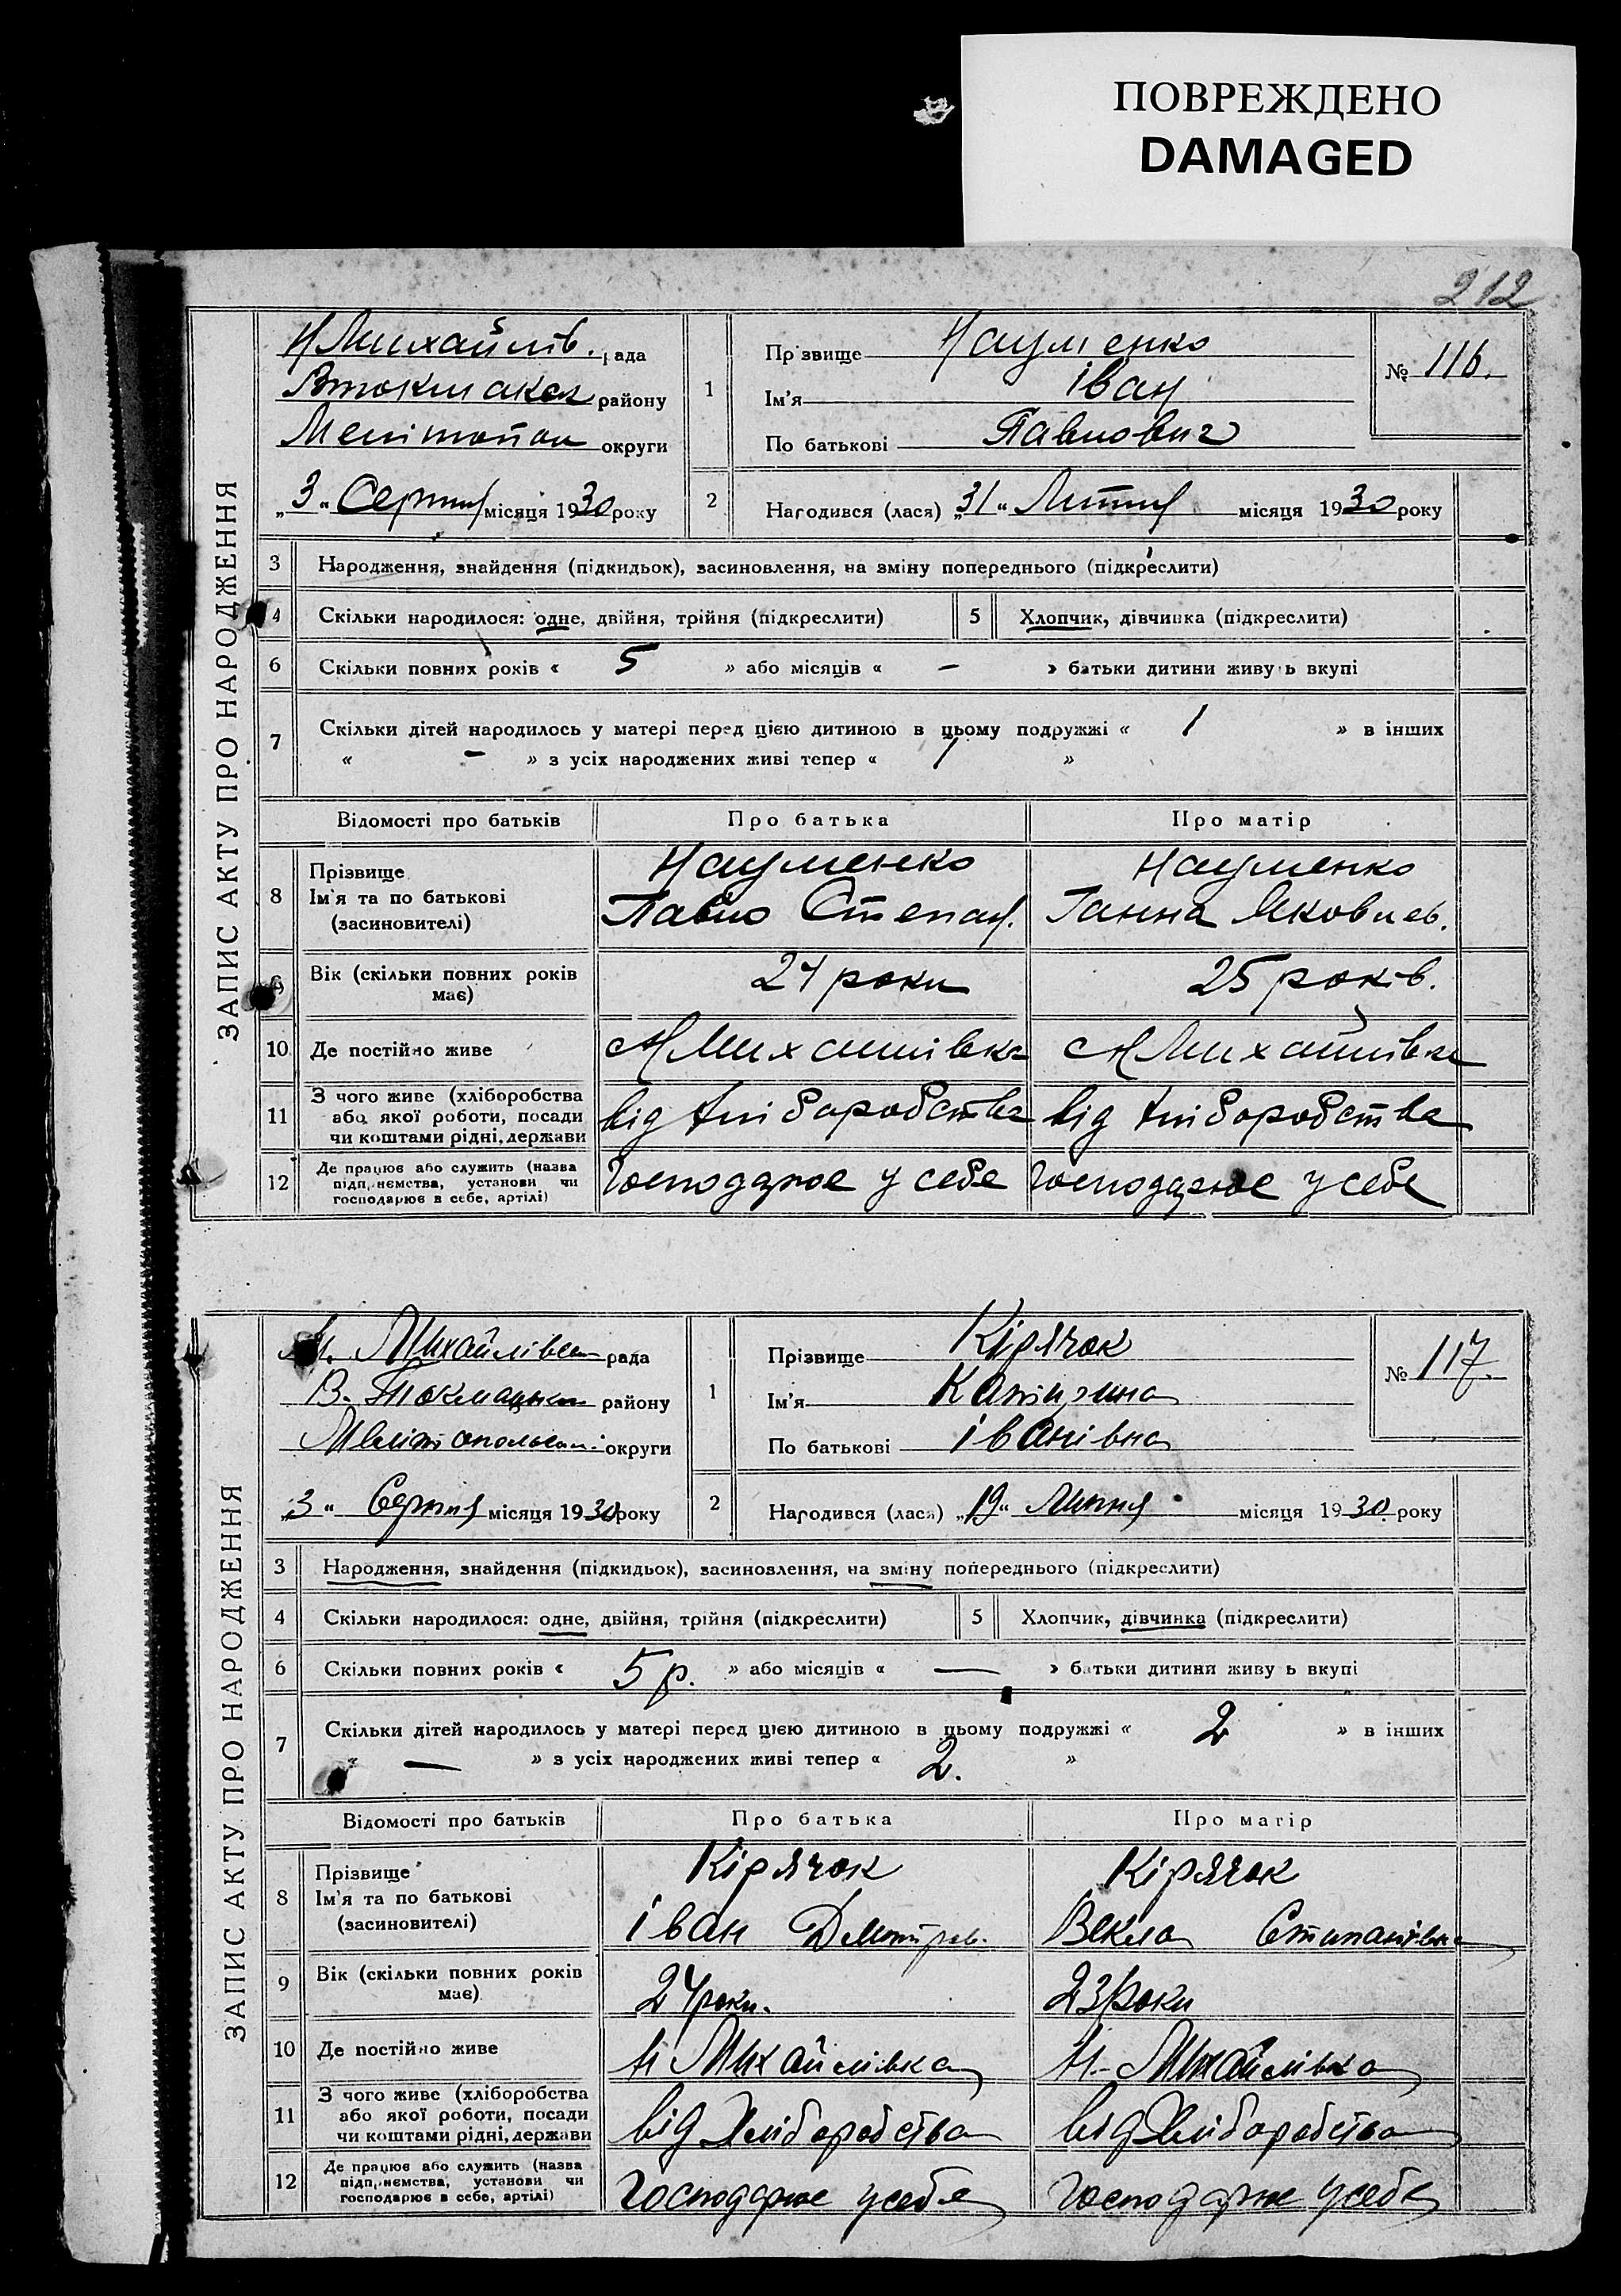 ПОВРЕЖДЕНО
DAMAGED
212
ЗАПИС АКТУ ПРО НАРОДЖЕННЯ
НМихайлів. рада
Втокмакск району
Мелітопол округи
„3“ Серпня місяця 1930 року
1
Прізвище Науменко
Ім'я Іван
По батькові Павлович
№ 116.
2
Народився (лася) „31“ Липня місяця 1930 року
3 Народження, знайдення (підкидьок), засиновлення, на зміну попереднього (підкреслити)
4 Скільки народилося: одне, двійня, трійня (підкреслити) 5 Хлопчик, дівчинка (підкреслити)
6 Скільки повних років « 5 » або місяців « – » батьки дитини живуть вкупі
7 Скільки дітей народилось у матері перед цією дитиною в цьому подружжі « 1 » в інших
« – » з усіх народжених живі тепер « 1 »
Відомості про батьків Про батька Про матір
8 Прізвище Науменко Науменко
Ім'я та по батькові Павло Степан. Ганна Яковлев.
(засиновителі)
9 Вік (скільки повних років має) 24 роки 25 років.
10 Де постійно живе НМихайлівка НМихайлівка
11 З чого живе (хліборобства
або якої роботи, посади від хліборобства від хліборобства
чи коштами рідні, держави
12 Де працює або служить (назва
підприємства, установи чи Господарює у себе Господарює у себе
господарює в себе, артілі)
ЗАПИС АКТУ ПРО НАРОДЖЕННЯ
Н. Михайлівсь рада
В-Токмацьком району
Мелітопольськ. округи
„3“ Серпня місяця 1930 року
1
Прізвище Кірячок
Ім'я Катирина
По батькові Іванівна
№ 117.
2
Народився (лася) „19“ Липня місяця 1930 року
3 Народження, знайдення (підкидьок), засиновлення, на зміну попереднього (підкреслити)
4 Скільки народилося: одне, двійня, трійня (підкреслити) 5 Хлопчик, дівчинка (підкреслити)
6 Скільки повних років « 5 р. » або місяців « — » батьки дитини живу ь вкупі
7 Скільки дітей народилось у матері перед цією дитиною в цьому подружжі « 2 » в інших
« — » з усіх народжених живі тепер « 2. »
Відомості про батьків Про батька Про матір
8 Прізвище Кірячок Кірячок
Ім'я та по батькові Іван Дмитров. Векла Степанівна
(засиновителі)
9 Вік (скільки повних років має) 24 роки. 23 роки
10 Де постійно живе Н Михайлівка Н-Михайлівка
11 З чого живе (хліборобства
або якої роботи, посади від Хліборобства від Хліборобства
чи коштами рідні, держави
12 Де працює або служить (назва
підприємства, установи чи Господарює у себе Господарює у себе
господарює в себе, артілі)